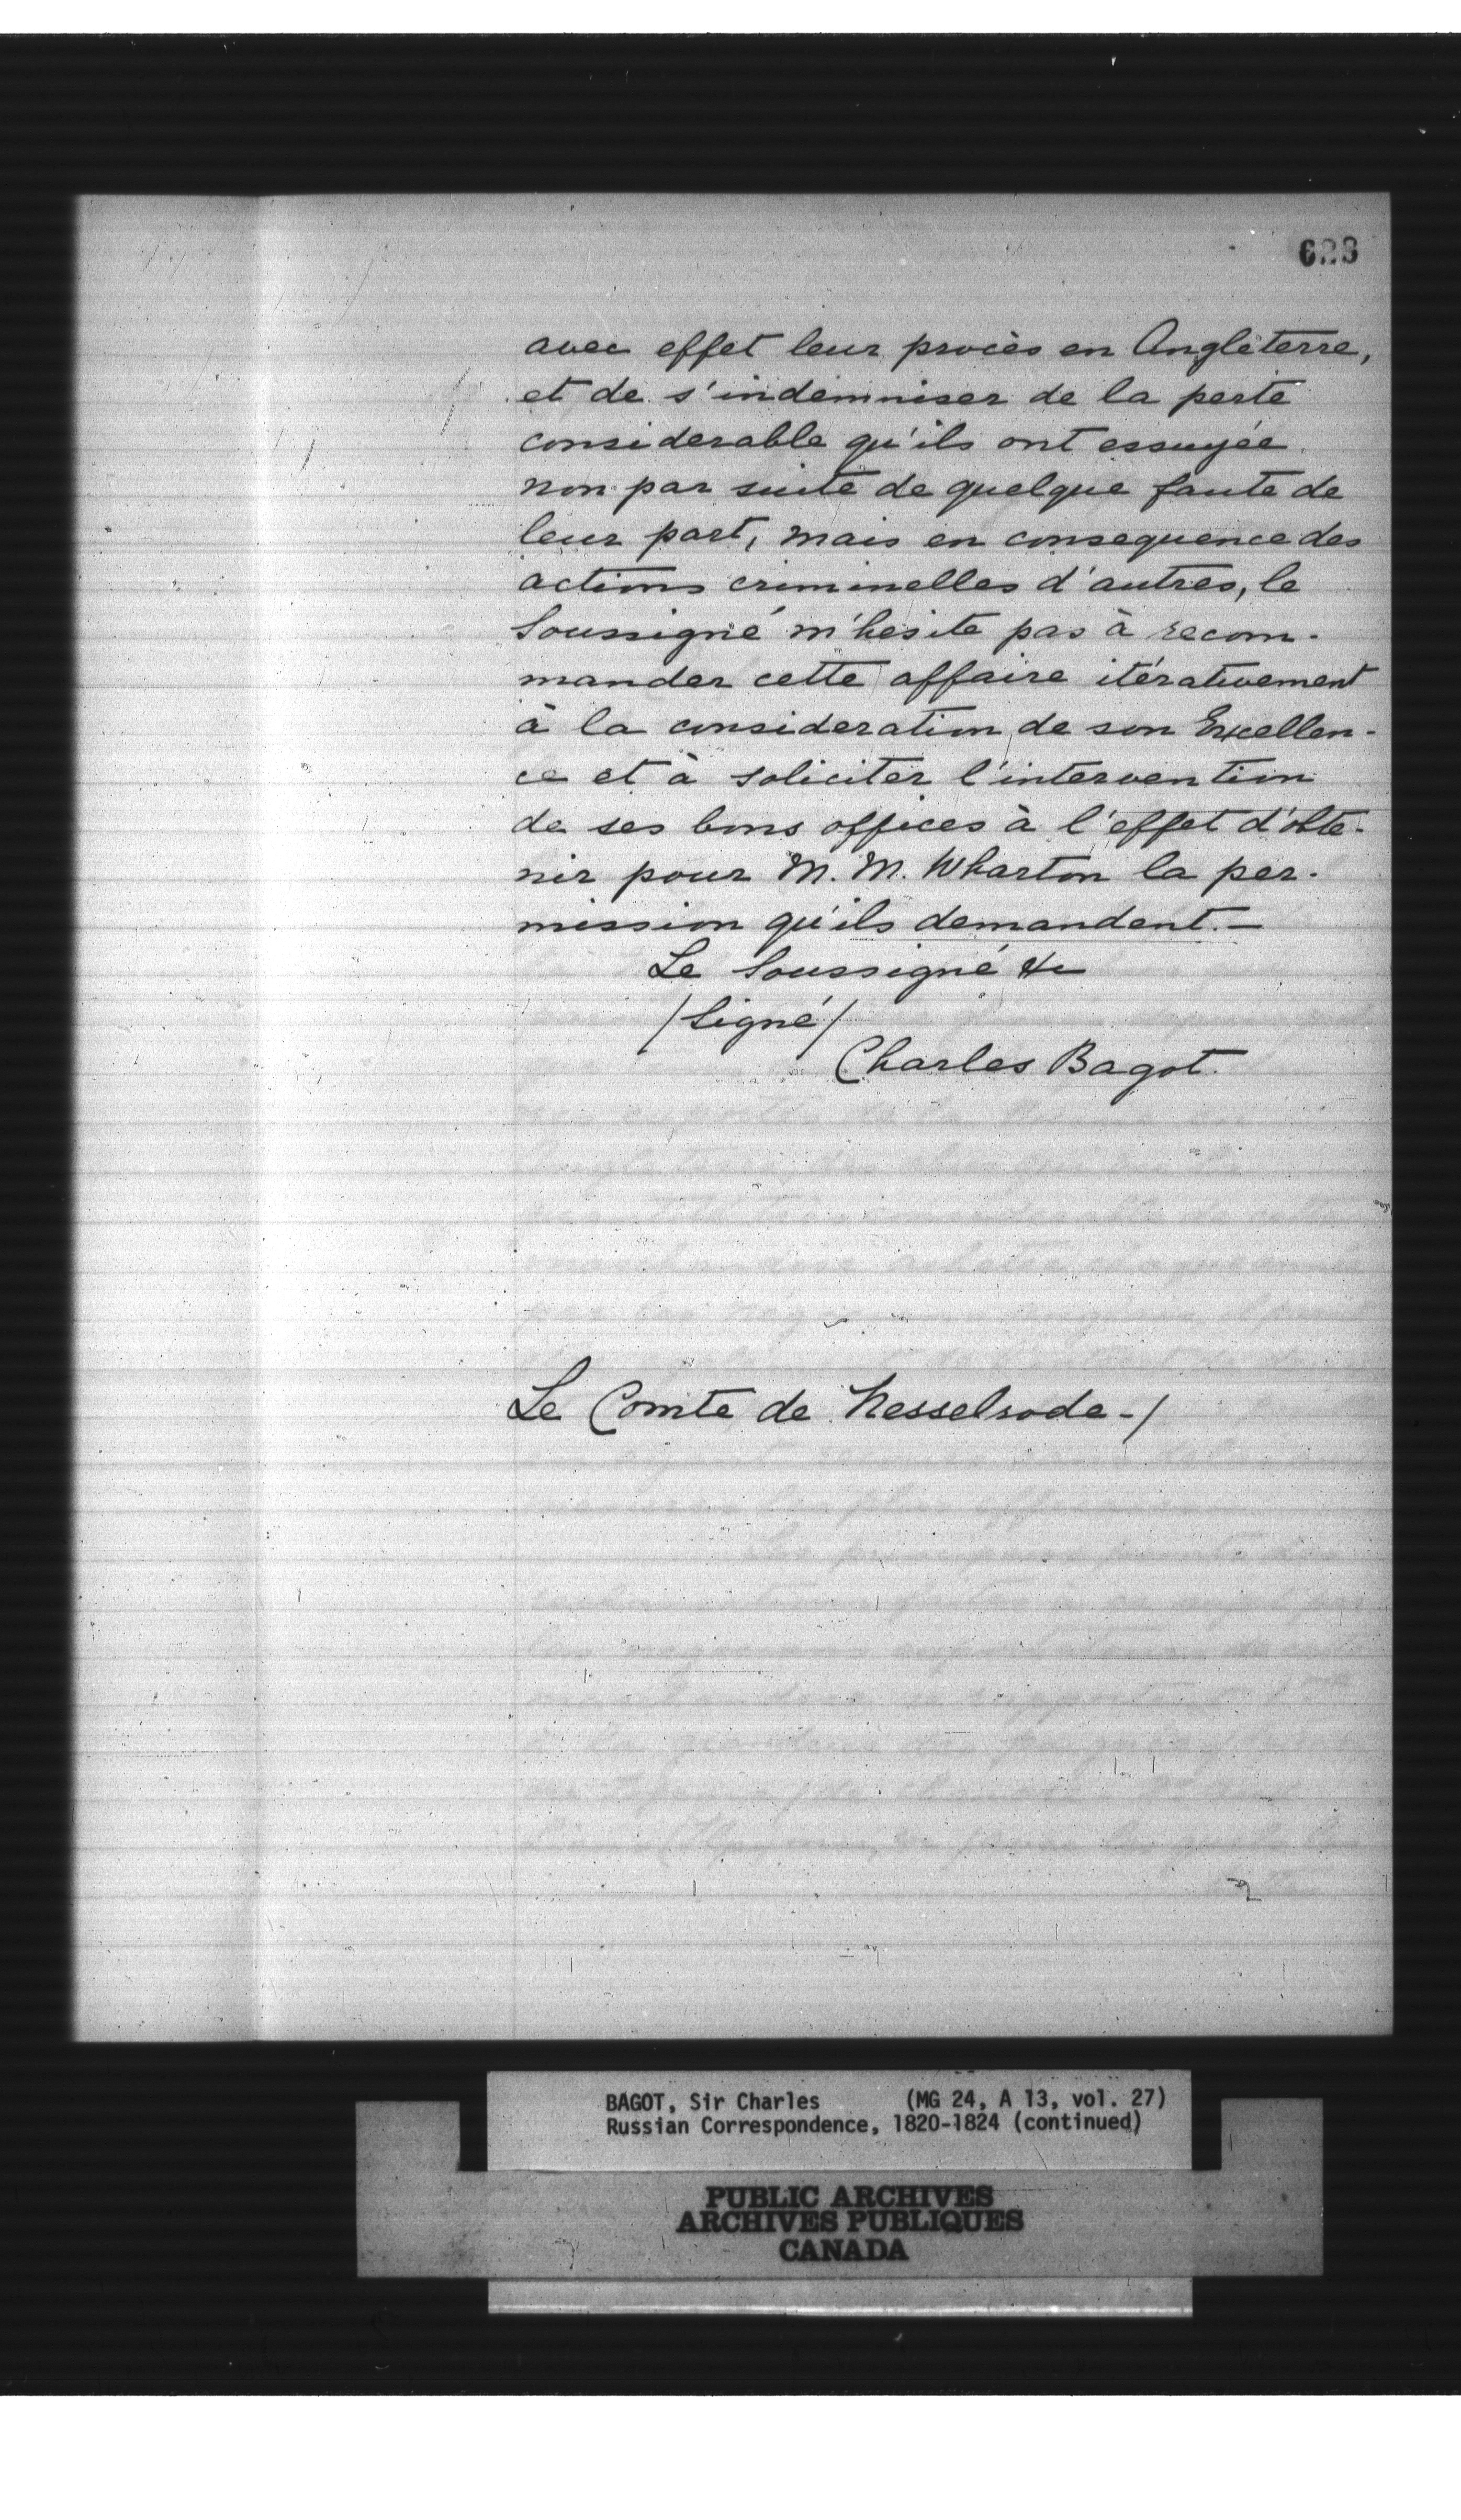 623
avec effet leur procès en Angleterre,
et de s'indemniser de la perte
considerable qu'ils ont essuyée
non par suite de quelque faute de
leur part, mais en consequence des
actions criminelles d'autres, le
Soussigné n'hesite pas à recom-
mander cette affaire itérativement
à la consideration de son Excellen-
ce et à soliciter l'intervention
de ses bons offices à l'effet d'obte-
nir pour M. M. Wharton la per-
mission qu'ils demandent.—
Le Soussigné &c
/Signé/
Charles Bagot.
Le Comte de Nesselrode-/
BAGOT, Sir Charles (MG 24, A 13, vol. 27)
Russian Correspondence, 1820-1824 (continued)
PUBLIC ARCHIVES
ARCHIVES PUBLIQUES
CANADA